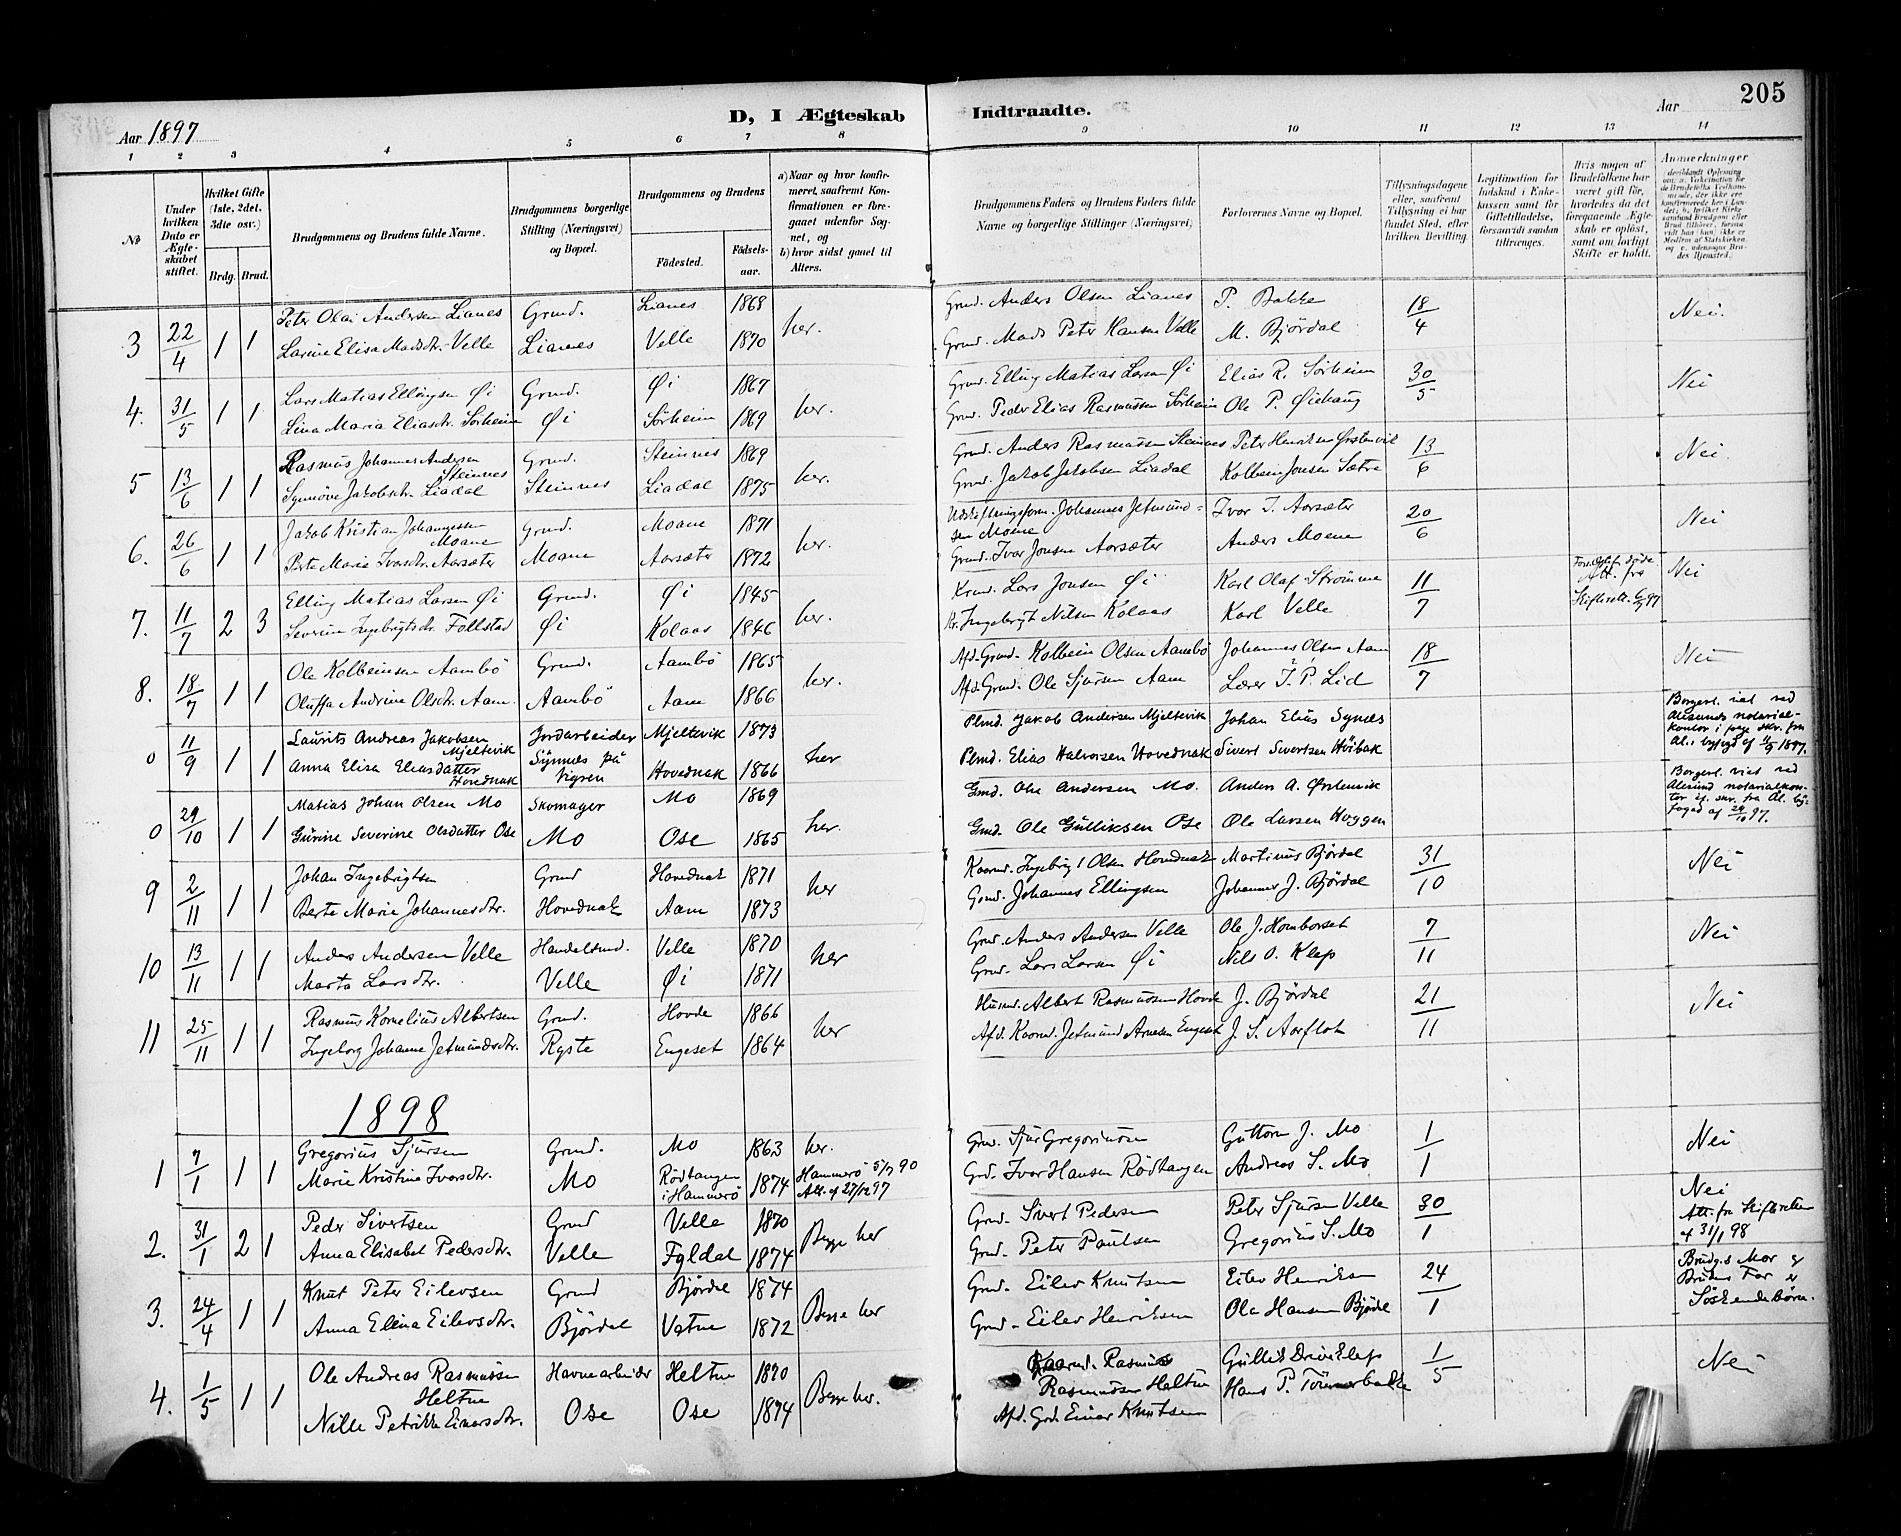 205
D, I Ægteskab Indtraadte.
Aar 1897
Aar
1 2 3 4 5 6 7 8 9 10 11 12 13 14
No
Under hvilken Dato er Ægteskabet stiftet.
Hvilket Gifte (1ste, 2det, 3die osv.)
Brdg. Brud.
Brudgommens og Brudens fulde Navne.
Brudgommens borgerlige Stilling (Næringsvei) og Bopæl.
Brudgommens og Brudens
Födested.
Födselsaar.
a) Naar og hvor konfirmeret, saafremt Konfirmationen er foregaaet udenfor Sognet, og
b) hvor sidst gaaet til Alters.
Brudgommens Faders og Brudens Faders fulde Navne og borgerlige Stillinger (Næringsvei)
Forlovernes Navne og Bopæl.
Tillysningsdagene eller, saafremt Tillysning ei har fundet Sted, efter hvilken Bevilling.
Legitimation for Indskud i Enkekassen samt for Giftetilladelse, forsaavidt saadan tiltrænges.
Hvis nogen af Brudefolkene har været gift før, hvorledes da det foregaaende Ægteskab er oplöst, samt om lovligt Skifte er holdt.
Anmærkninger
3 22/4 1 1 Peter Olai Andersen Lianes Grund. Lianes 1868 her. Grund. Anders Olsen Lianes P. Bakke 18/4 Nei.
Larine Elisa Madsdtr. Velle Lianes Velle 1870 Grund. Mads Peter Hansen Velle M. Björdal
4. 31/5 1 1 Lars Matias Ellingsen Øi Grund. Øi 1867 her. Grund. Elling Matias Larsen Øi Elias R. Sörheim 30/5 Nei
Lina Maria Eliasdtr. Sörheim Øi Sörheim 1869 Grund. Peder Elias Rasmussen Sörheim Ole P. Øiehaug
5 13/6 1 1 Rasmus Johannes Andersen Steinnes Grund. Steinnes 1869 her. Grund. Anders Rasmussen Steinnes Peter Henriksen Ørstenvik 13/6 Nei.
Synnöve Jakobsdtr. Liadal Steinnes Liadal 1875 Grund. Jakob Jakobsen Liadal Kolbein Jonsen Sætre
6. 26/6 1 1 Jakob Kristian Johannessen Moane Grund. Moane 1871 her. Udskiftningsform. Johannes Jetmundsen Moane Ivar I. Aarsæter 20/6 Nei
Berte Marie Ivarsdtr. Aarsæter Moane Aarsæter 1872 Grund. Ivar Jonsen Aarsæter Anders Moane
7. 11/7 2 3 Elling Matias Larsen Øi Grund. Øi 1845 her. Lars Jonsen Øi Karl Olaf Strömme 11/7 Att. fra Skifterett. 6/7 97 Nei
Severine Ingebrigtsdtr. Follstad Øi Kolaas 1846 Ingebrigt Nilsen Kolaas Karl Velle
8. 18/7 1 1 Ole Kolbeinsen Aambö Grund. Aambö 1865 her. Afd. Grund. Kolbein Olsen Aambö Johannes Olsen Aam 18/7 Nei
Oluffa Andrine Olsdtr. Aam Aambö Aam 1866 Afd. Grund. Ole Sjursen Aam Lærer I. P. Lid
0 11/9 1 1 Laurits Andreas Jakobsen Mjeltevik Jordarbeider Mjeltevik 1873 her Plmd. Jakob Andersen Mjeltevik Johan Elias Synnes
Anna Elisa Eliasdatter Hovednak Synnes på Vigren Hovednak 1866 Plmd. Elias Halvorsen Hovednak Sivert Sivertsen Höibak
Borgerl. viet ved Ålesunds notarialkontor i følge skr. fra Ål.s byfogd af 11/9 1897.
0 29/10 1 1 Matias Johan Olsen Mo Skomager Mo 1869 her. Gmd. Ole Andersen Mo. Anders A. Ørstenvik
Gurine Severine Olsdatter Ose Mo Ose 1865 Gmd. Ole Gulliksen Ose Ole Larsen Hoggen
Borgerl. viet ved Ålesund notarialkontor if. skr. fra Ål. byfoged af 29/10 97.
9 2/11 1 1 Johan Ingebrigtsen Grund Hovednak 1871 her Kaarmd. Ingebrigt Olsen Hovednak Martinus Björdal 31/10 Nei
Berte Marie Johannesdtr. Hovednak Aam 1873 Grmd. Johannes Ellingsen Johannes J. Björdal
10 13/11 1 1 Anders Andersen Velle Handelsmd. Velle 1870 her Grmd. Anders Andersen Velle Ole J. Homborset 7/11 Nei
Marta Larsdtr. Velle Øi 1871 Grmd. Lars Larsen Øi Nils O. Klep
11 25/11 1 1 Rasmus Kornelius Albertsen Grund. Hovde 1866 her Husmd. Albert Rasmussen Hovde J. Björdal 21/11 Nei
Ingeborg Johanne Jetmundsdtr. Ryste Engeset 1864 Afd. Kaarmd. Jetmund Arnesen Engeset J. S. Aarflot
1898
1 7/1 1 1 Gregorius Sjursen Grund. Mo 1863 her. Grmd. Sjur Gregoriussen Guttorm J. Mo 1/1 Nei
Marie Kristine Ivarsdtr. Mo Rödtangen i Hammerö 1874 Hammerö 5/7 90 Att. af 27/12 97 Grd. Ivar Hansen Rödtangen Andreas S. Mo
2. 31/1 2 1 Peder Sivertsen Grund Velle 1870 Begge her Grmd. Sivert Pedersen Peter Sjursen Velle 30/1 Nei Att. fra Skifteretten af 31/1 98
Anna Elisabet Pedersdtr. Velle Fyldal 1874 Grmd. Peter Paulsen Gregorius S. Mo
3. 24/4 1 1 Knut Peter Eilevsen Grund Björdal 1874 Begge her Grmd. Eilev Knutsen Eilev Henriksen 24/1 Brudg.s Mor og Brudens Far er Söskendebörn.
Anna Elina Eilevsdtr. Björdal Vatne 1872 Grmd. Eilev Henriksen Ola Hansen Bjödal
4. 1/5 1 1 Ole Andreas Rasmussen Heltne Havnearbeider Heltne 1870 Begge her. Kaarmd. Rasmus Rasmussen Heltne Gullik Klep 1/5 Nei
Nille Petrikke Einarsdtr. Ose Ose 1874 Afd. Grd. Einar Knutsen Hans P. Tömmerbakke